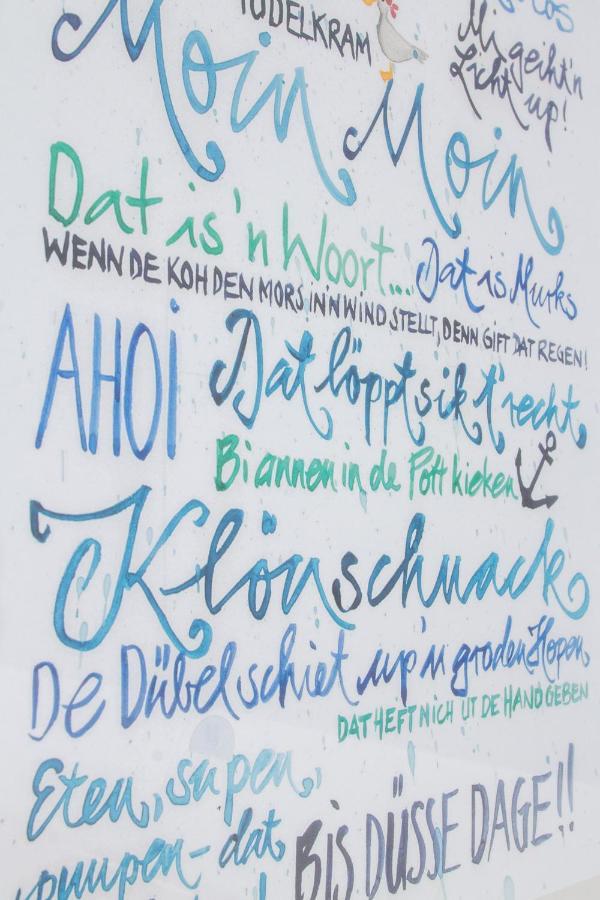 TÜDELKRAM
los
Mi geiht'n
Licht up!
Moin Moin
Dat is'n Woort... Dat is Murks
WENN DE KOH DEN MORS IN'N WIND STELLT, DENN GIFT DAT REGEN!
AHOI Dat löppt sik t'recht,
Bi annen in de Pott kieken
Klönschnack
De Dübel schiet up'n groden Hopen,
DAT HEFT MICH UT DE HAND GEBEN
Eten, supen,
pumpen - dat
BIS DÜSSE DAGE!!